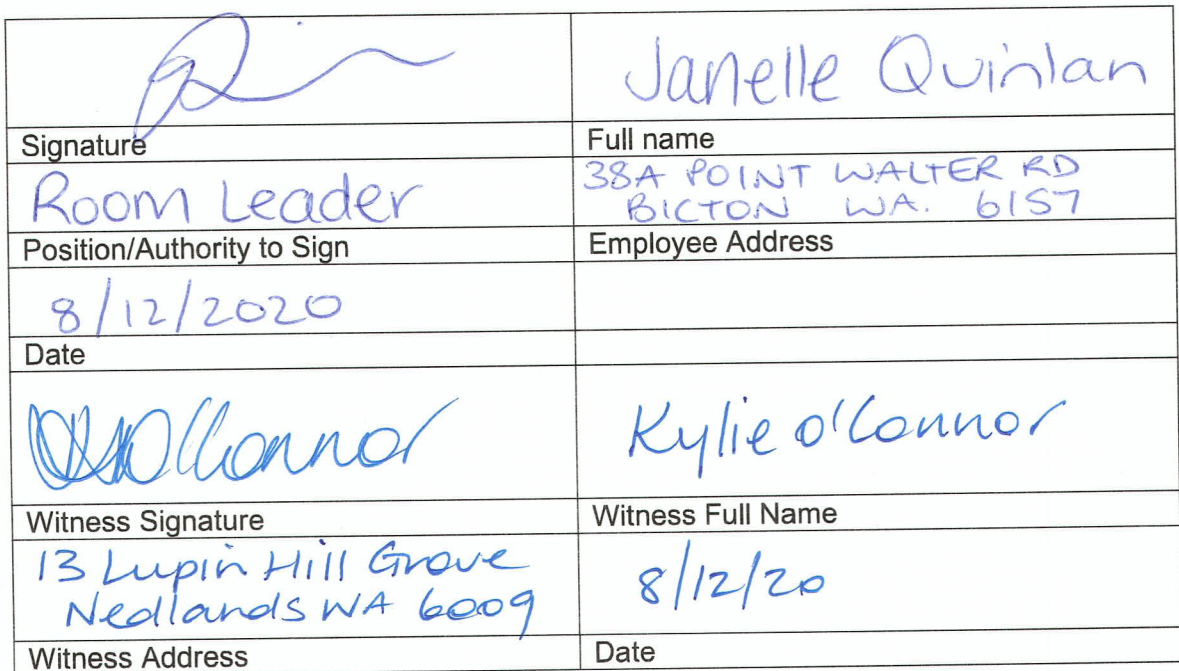 Janelle Quinlan
Signature
Full name
Room Leader
38A POINT WALTER RD
BICTON WA. 6157
Position/Authority to Sign
Employee Address
8/12/2020
Date
O'Connor
Kylie O'Connor
Witness Signature
Witness Full Name
13 Lupin Hill Grove
Nedlands WA 6009
8/12/20
Witness Address
Date